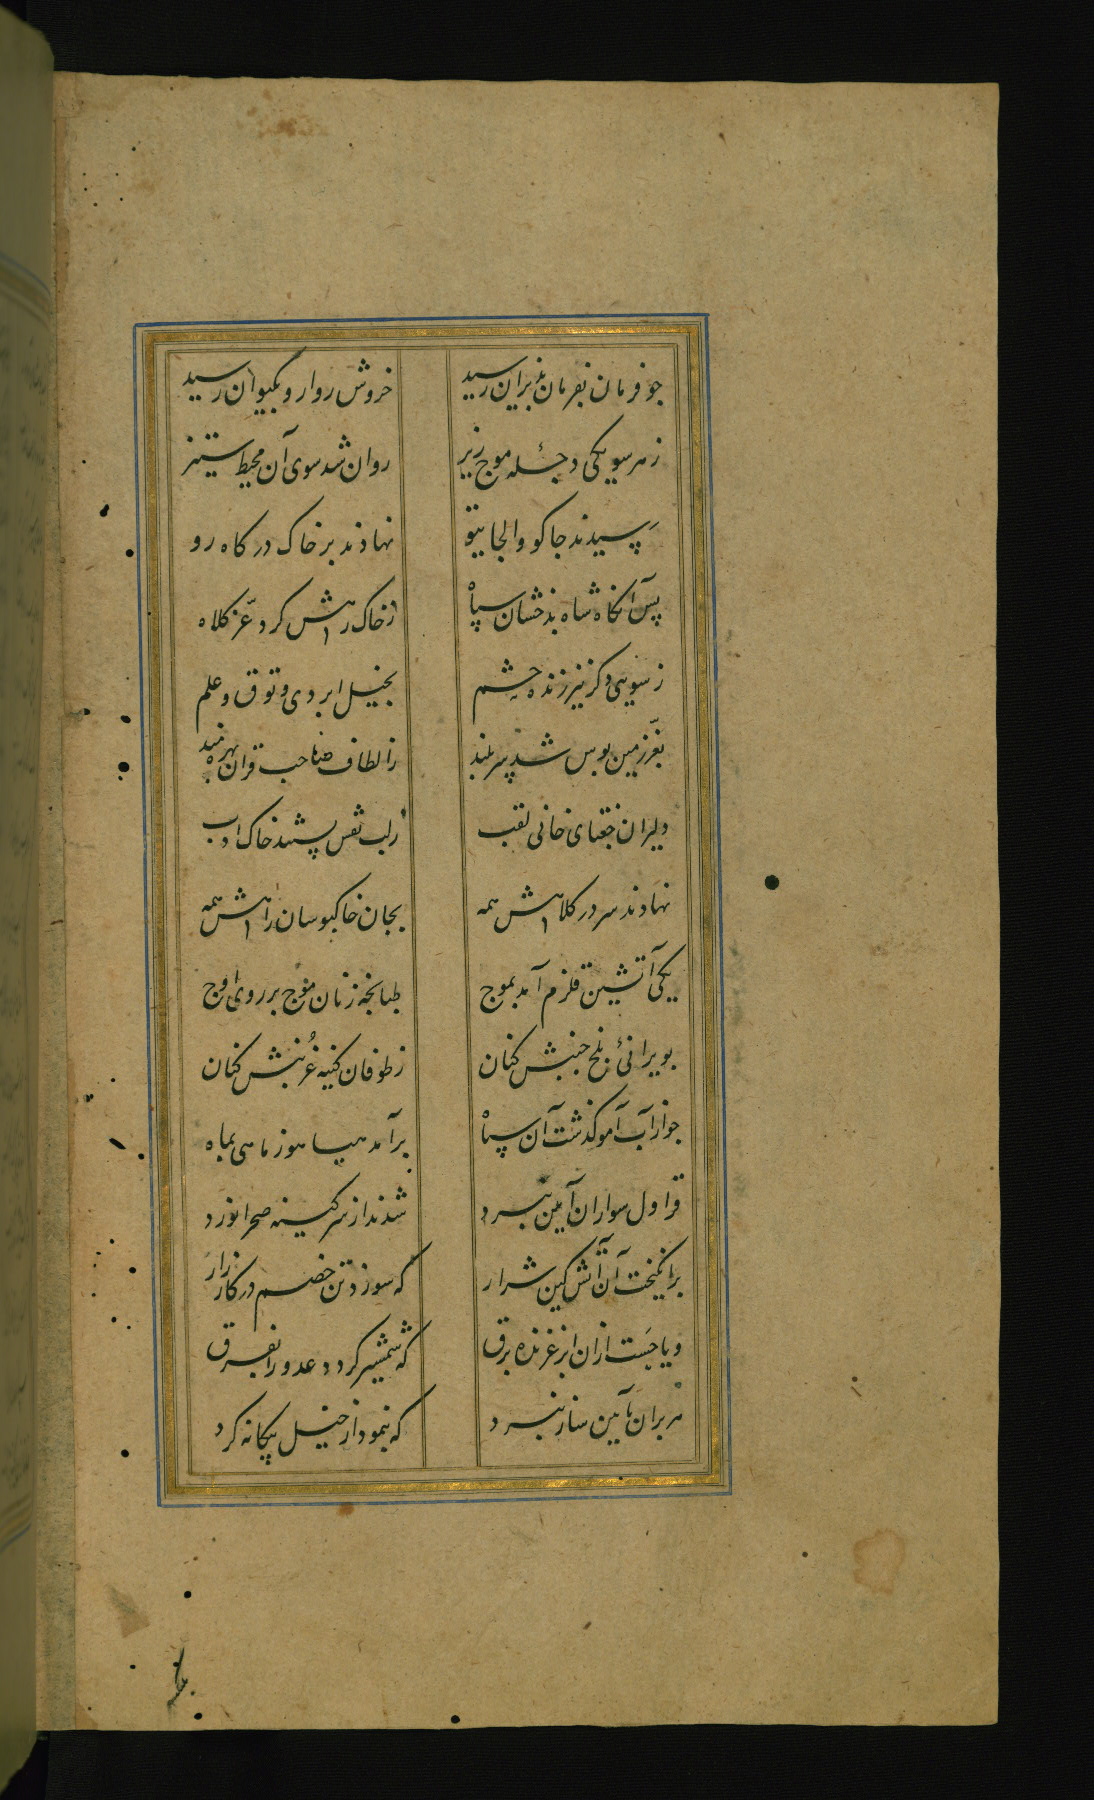 جو فرمان بفرمان پذیران رسید خروش روارو بکیوان رسید
ز هر سو یکی دجلهٔ موج ریز روان شد سوی آن محیط ستیز
رسیدند جاکو و الجایتو نهادند بر خاک درکاه رو
پس آنکاه شاه بدخشان سپاه ز خاک رهش کرد عزّ کلاه
ز سویی دکر نیز زنده حشم بخیل ابردی و توق و علم
بعزّ زمین بوس شد سربلند ز الطاف صاحب قران بهره‌مند
دلیران جغتای خانی لقب ز لب نقس بستند خاک ادب
نهادند سر در کلاهش همه بجان خاکبوسان راهش همه
یکی آتشین قلزم آمد بموج طبانجه زنان موج بر روی اوج
بویرانیٔ بلخ جنبش کنان ز طوفان کینه غُرنبش کنان
جو از آب آمو کذشت آن سپاه برآمد هیاهو ز ماهی بماه
قراول سواران آیین نبرد شدند از سر کینه صحرا نورد
برانکیخت آن آتش کین شرار که سوزد تن خصم در کارزار
و یا جَست ازان ابر غرنده برق که شمشیر کردد عدو را بفرق
هزبران بآیین ساز نبرد که بنمود از خیل بیکانه کرد